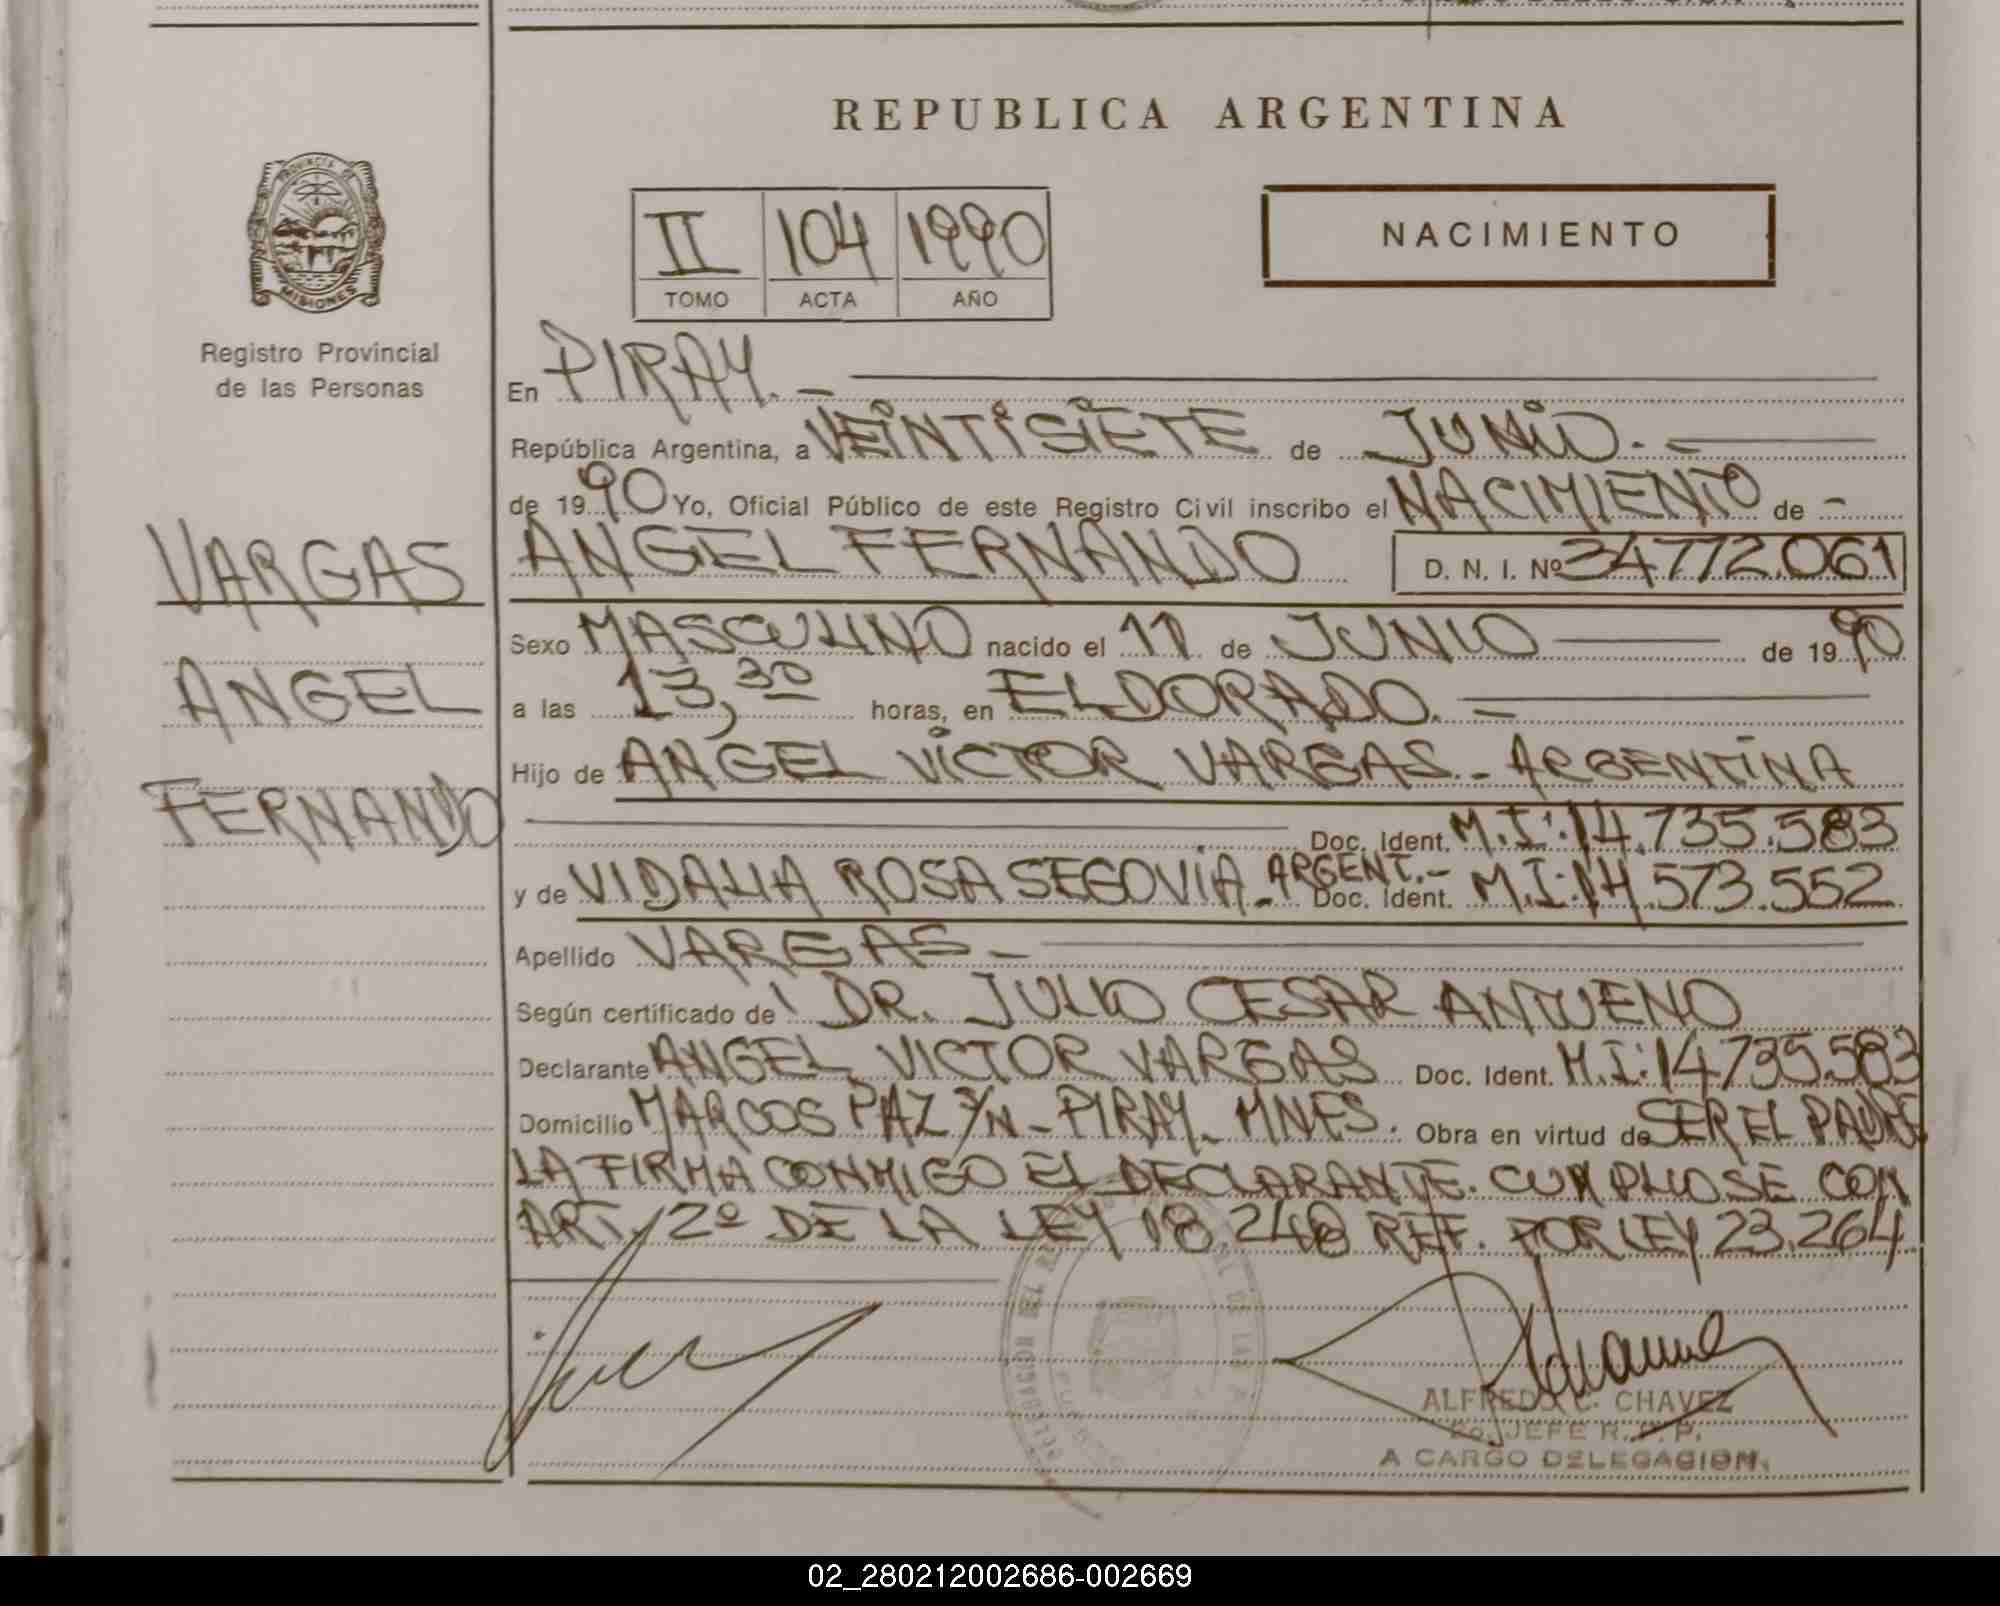 REPUBLICA ARGENTINA
PROVINCIA DE
MISIONES
Registro Provincial
de las Personas
II 104 1990
TOMO ACTA AÑO
NACIMIENTO
En PIRAY. -
República Argentina, a VEINTISIETE de JUNIO. -
de 1990 Yo, Oficial Público de este Registro Civil inscribo el NACIMIENTO de -
VARGAS
ANGEL
FERNANDO
ANGEL FERNANDO D. N. I. Nº 34772.061
Sexo MASCULINO nacido el 11 de JUNIO de 1990
a las 13,30 horas, en ELDORADO. -
Hijo de ANGEL VICTOR VARGAS - ARGENTINA
Doc. Ident. M.I: 14.735.583
y de VIDALIA ROSA SEGOVIA - ARGENT. - Doc. Ident. M.I: 14.573.552
Apellido VARGAS -
Según certificado de DR. JULIO CESAR ANTUENO
Declarante ANGEL VICTOR VARGAS Doc. Ident. M.I: 14.735.583
Domicilio MARCOS PAZ S/N - PIRAY - MNES. Obra en virtud de SER EL PADRE
LA FIRMA CONMIGO EL DECLARANTE. CUMPLIOSE CON
ART. 2º DE LA LEY 18.248 REF. POR LEY 23.264
ALFREDO C. CHAVEZ
JEFE R. P. P.
A CARGO DELEGACION
02_280212002686-002669